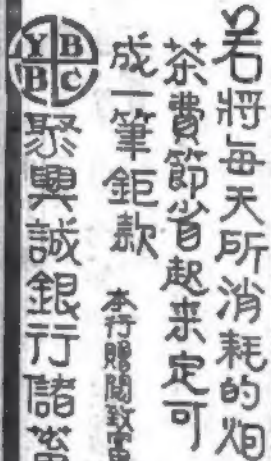 若將每天所消耗的烟
茶費節省起來定可
成一筆鉅款
本行贈閱致富
YBBC
聚興誠銀行儲蓄